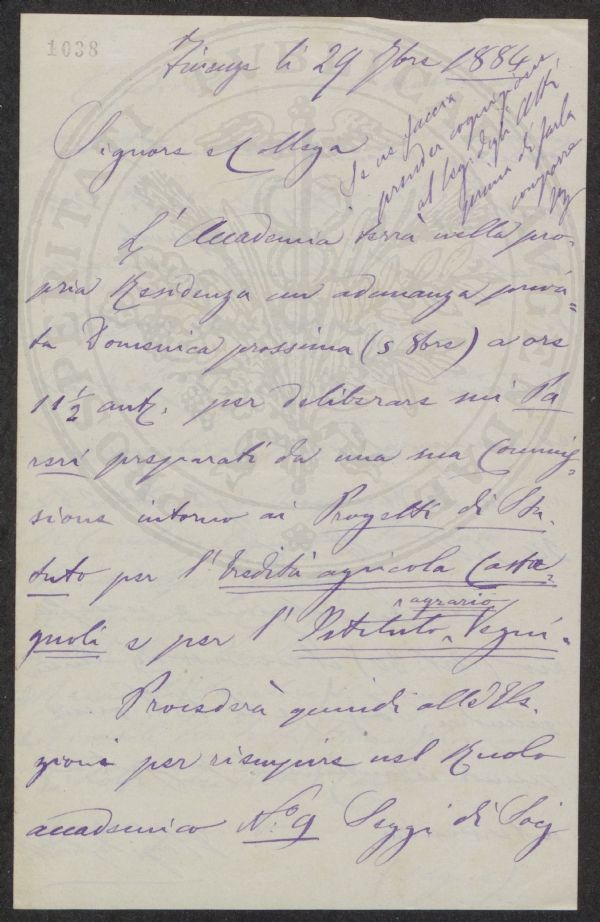 1038
Firenze li 29 7bre 1884
Signore e Collega
Se ne faccia
prender cognizione
al Segr. degli Atti
prima di farla
comparire
L'Accademia terrà nella pro-
pria Residenza un adunanza priva=
ta Domenica prossima (5 8bre) a ore
11 ½ ant. per deliberare sui Pa
reri preparati da una sua Commis=
sione intorno ai Progetti di Sta.
tuto per l'Eredità agricola Casta-
gnoli e per l'Istituto agrario Vegni.
Procederà quindi alle Ele-
zioni per riempire nel Ruolo
accademico N.o 9 Seggi di Socj
PROSPERITATI PUBLICAE AUGENDAE